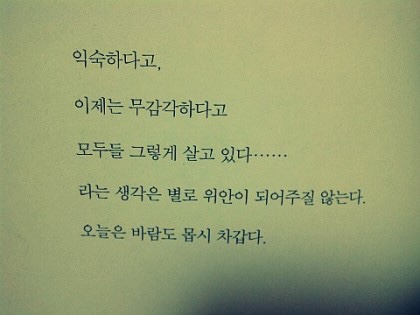 익숙하다고,
이제는 무감각하다고
모두들 그렇게 살고 있다……
라는 생각은 별로 위안이 되어주질 않는다.
오늘은 바람도 몹시 차갑다.